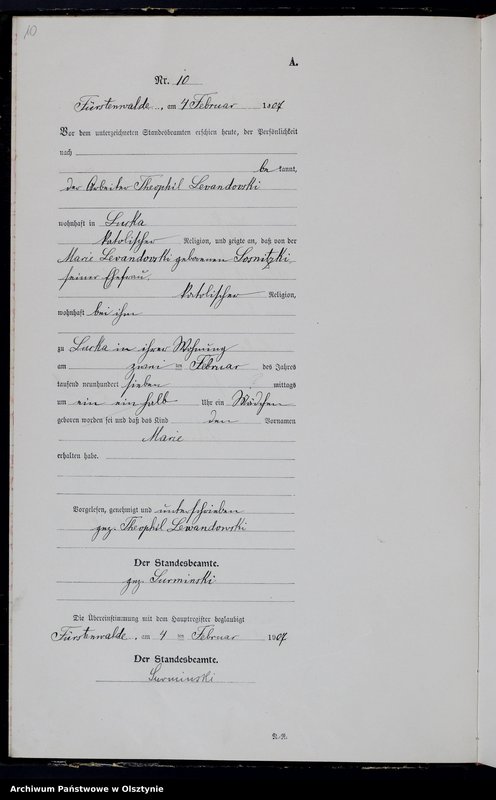 10
A.
Nr. 10
Fürstenwalde, am 4 Februar 1907
Vor dem unterzeichneten Standesbeamten erschien heute, der Persönlichkeit
nach
be kannt,
der Arbeiter Theophil Levandovski
wohnhaft in Lurka
katolischer Religion, und zeigte an, daß von der
Marie Levandovski geborenen Sosnitzki
seiner Ehefrau,
katolischer Religion,
wohnhaft bei ihm
zu Lurka in ihrer Wohnung
am zwei ten Februar des Jahres
tausend neunhundert sieben mittags
um ein ein halb Uhr ein Mädchen
geboren worden sei und daß das Kind den Vornamen
Marie
erhalten habe.
Vorgelesen, genehmigt und unterschrieben
gez. Theophil Lewandowski
Der Standesbeamte.
gez. Surminski
Die Übereinstimmung mit dem Hauptregister beglaubigt
Fürstenwalde, am 4 ten Februar 1907
Der Standesbeamte.
Surminski
N.-R.
Archiwum Państwowe w Olsztynie